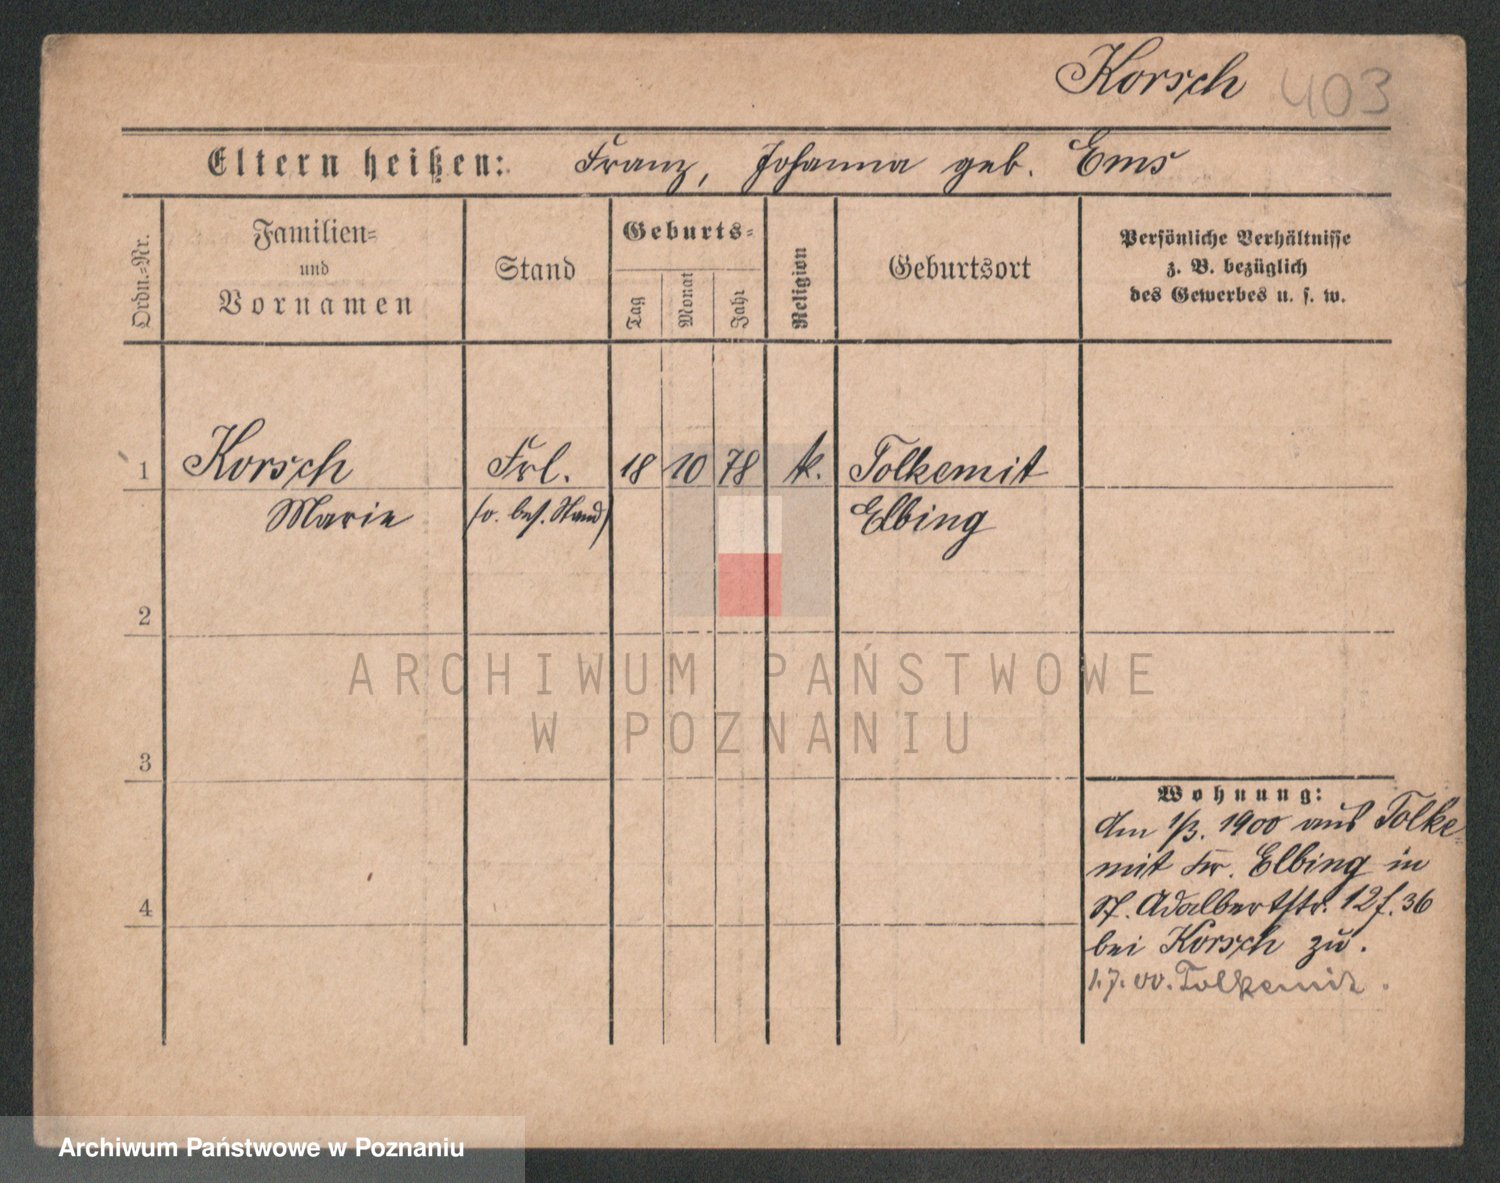 Korsch 403
Eltern heißen: Franz, Johanna geb. Ems
Ordn.=Nr.
Familien=
und
Vornamen
Stand
Geburts=
Tag
Monat
Jahr
Religion
Geburtsort
Persönliche Verhältnisse
z. B. bezüglich
des Gewerbes u. s. w.
1 Korsch Frl. 18 10 78 k. Tolkemit
Marie (o. bes. Stand) Elbing
2
ARCHIWUM PAŃSTWOWE
W POZNANIU
3
Wohnung:
Am 1/3. 1900 aus Tolke-
mit Kr. Elbing in
St. Adalbertstr. 12 f. 36
4
bei Korsch zu.
1.7.00. Tolkemit.
Archiwum Państwowe w Poznaniu